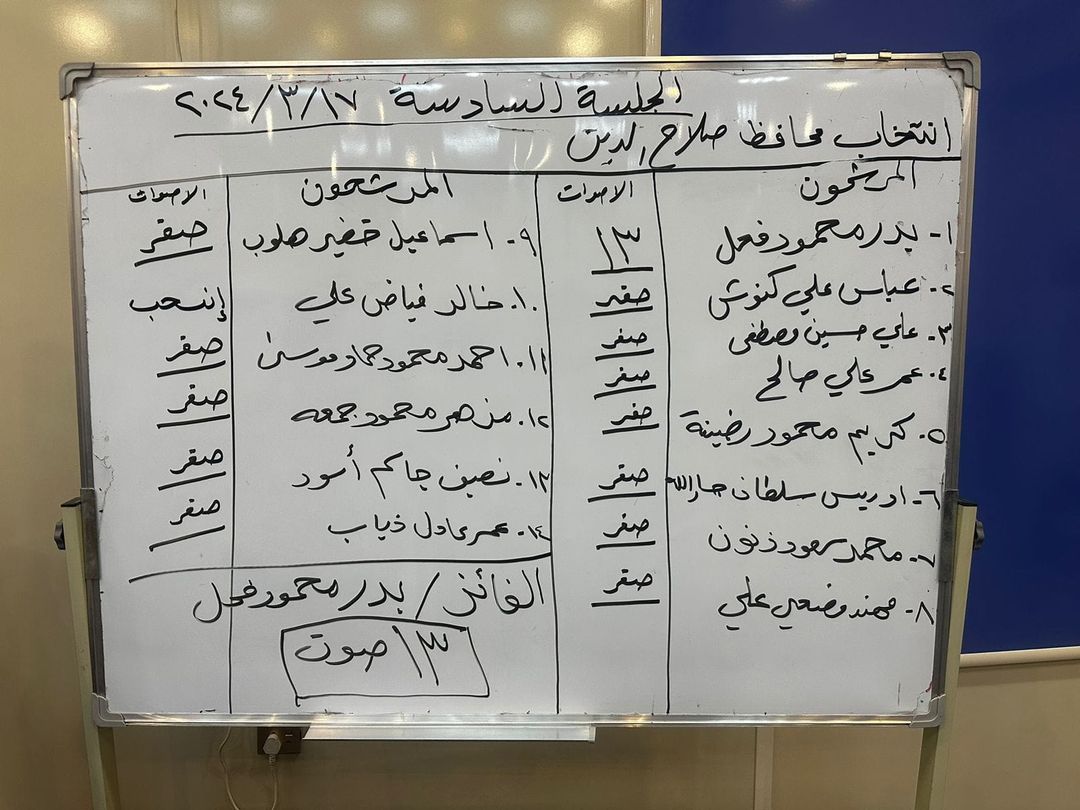 الجلسة السادسة ٢٠٢٤/٣/١٧
انتخاب محافظ صلاح الدين
المرشحون الاصوات
١- بدر محمود فحل ١٣
٢- عباس علي كنوش صفر
٣- علي حسين مصطفى صفر
٤- عمر علي صالح صفر
٥- كريم محمود رضينة صفر
٦- ادريس سلطان جارالله صفر
٧- محمد سعود زنون صفر
٨- مهند مضحي علي صفر
المرشحون الاصوات
٩- اسماعيل خضير هلوب صفر
١٠- خالد فياض علي إنسحب
١١- احمد محمود حماد موسى صفر
١٢- محمود جمعه صفر
١٣- نصيف جاكم أسود صفر
١٤- عمر عادل ذياب صفر
الفائز / بدر محمود فحل
١٣ صوت